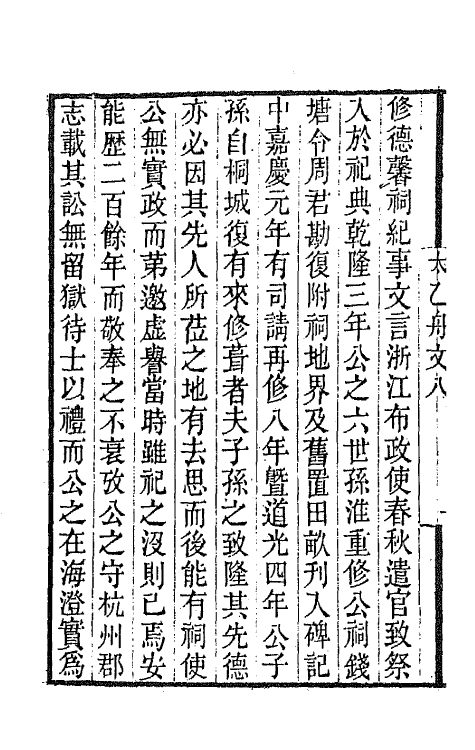 太乙舟文八
修德馨祠紀事文言浙江布政使春秋遣官致祭
入於祀典乾隆三年公之六世孫淮重修公祠錢
塘令周君勘復附祠地界及舊置田畝刊入碑記
中嘉慶元年有司請再修八年暨道光四年公子
孫自桐城復有來修葺者夫子孫之致隆其先德
亦必因其先人所莅之地有去思而後能有祠使
公無實政而第邀虛譽當時雖祀之沒則已焉安
能歷二百餘年而敬奉之不衰攷公之守杭州郡
志載其訟無留獄待士以禮而公之在海澄實爲